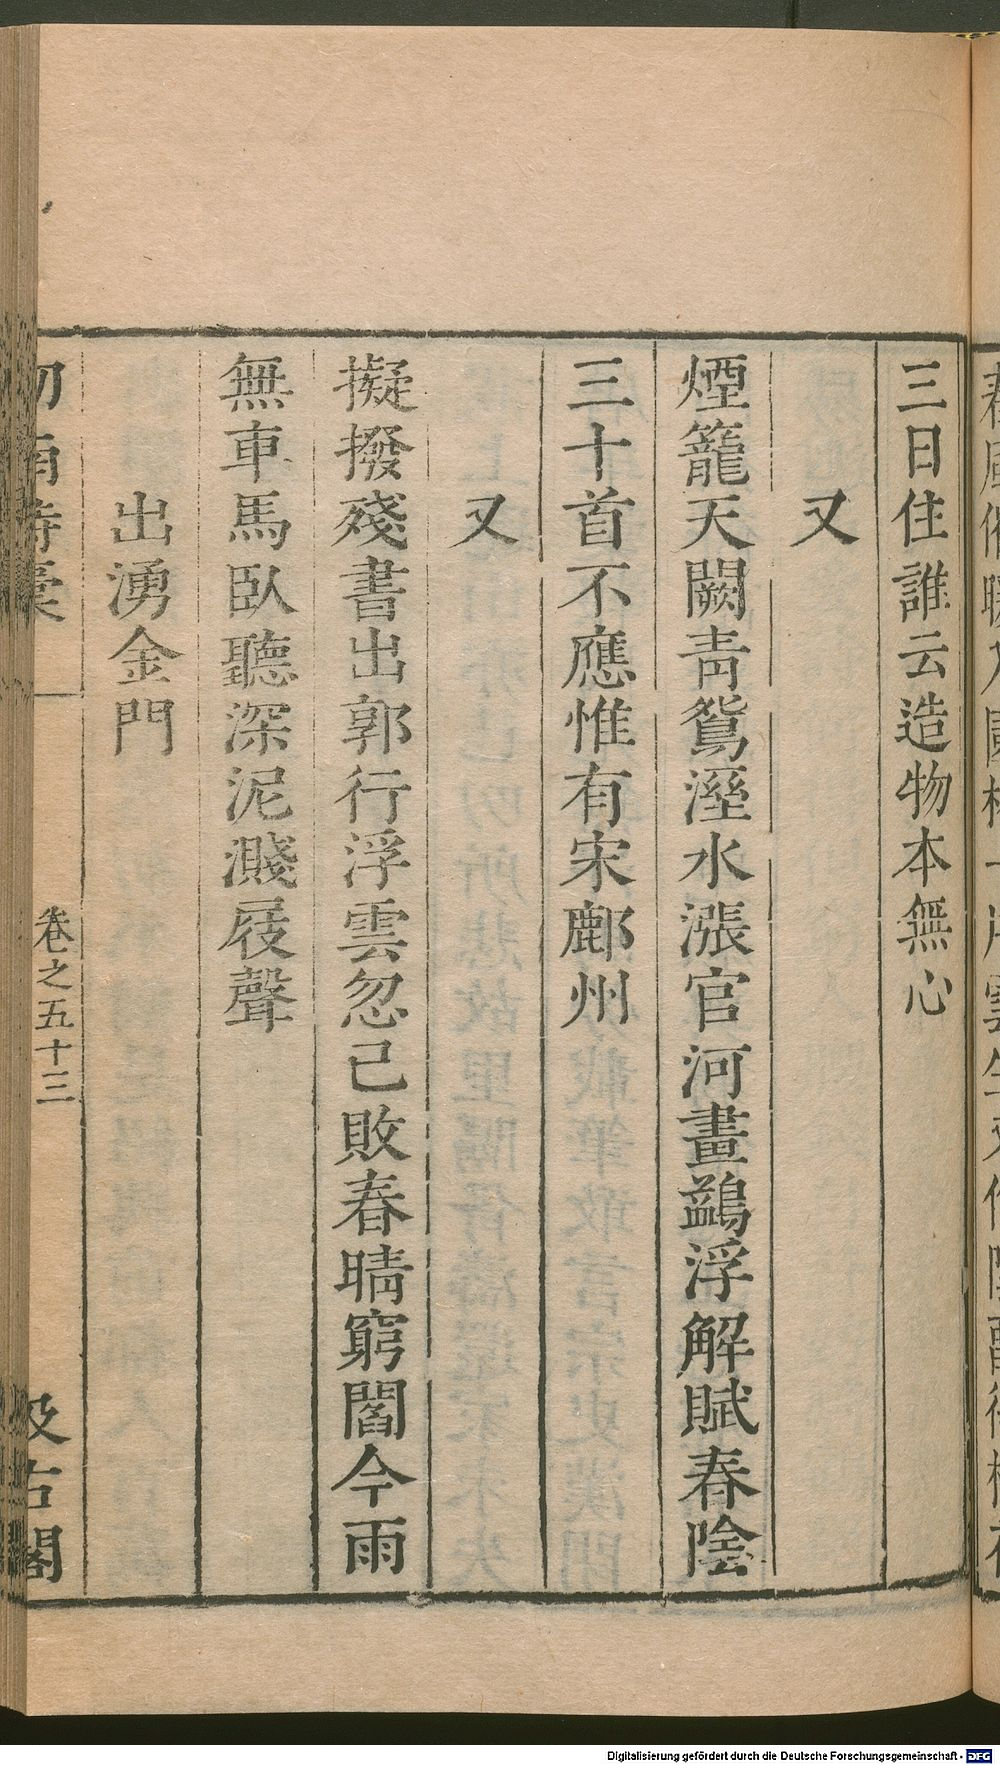 三日住誰云造物本無心
又
煙籠天闕靑鴛溼水漲官河畫鷁浮解賦春陰
三十首不應惟有宋鄜州
又
擬撥殘書出郭行浮雲忽已敗春晴窮閻今雨
無車馬臥聽深泥濺屐聲
出湧金門
卷之五十三
汲古閣
Digitalisierung gefördert durch die Deutsche Forschungsgemeinschaft - DFG